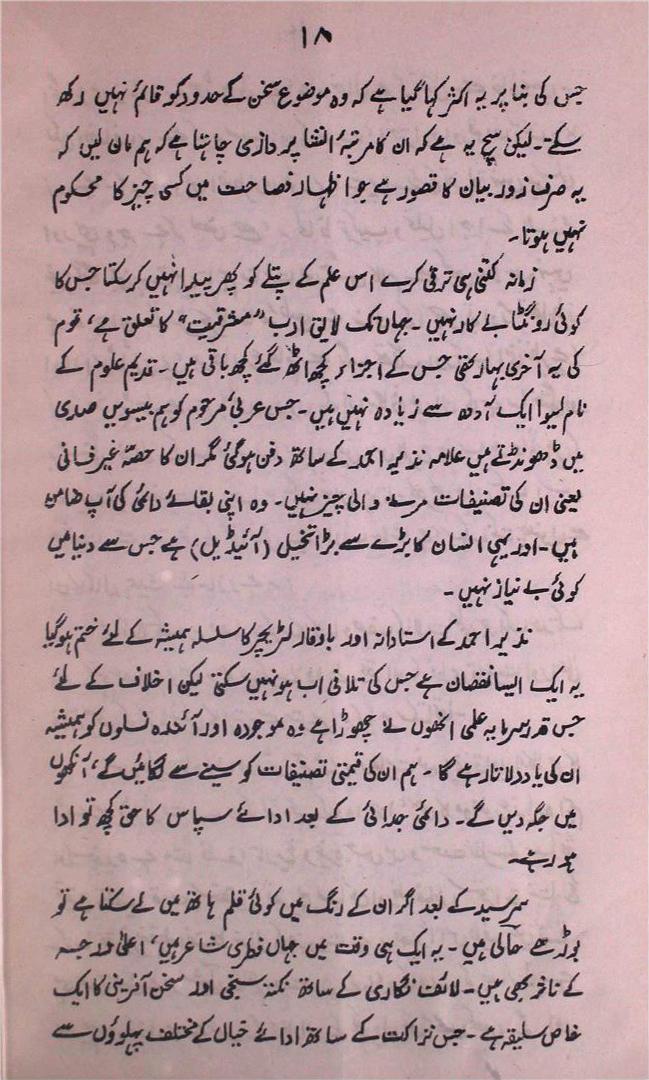 ۱۸
جس کی بنا پر یہ اکثر کہا گیا ہے کہ وہ موضوع سخن کے حدود کو قائم نہیں رکھ
سکتے۔ لیکن سچ یہ ہے کہ ان کا مرتبۂ انشا پردازی چاہتا ہے کہ ہم مان لیں کہ
یہ صرف زور بیان کا قصور ہے جو اظہار فصاحت میں کسی چیز کا محکوم
نہیں ہوتا۔
زمانہ کتنی ہی ترقی کرے اس علم کے پتلے کو پھر پیدا نہیں کر سکتا جس کا
کوئی رونگٹا بے کار نہیں۔ جہاں تک لایق ادب "مشرقیت" کا تعلق ہے، قوم
کی یہ آخری بہار تھی جس کے اجزاء کچھ اٹھ گئے کچھ باقی ہیں۔ قدیم علوم کے
نام لیوا ایک آدھ سے زیادہ نہیں ہیں۔ جس عربیٔ مرحوم کو ہم بیسویں صدی
میں ڈھونڈتے ہیں علامہ نذیر احمد کے ساتھ دفن ہوگئی مگر ان کا حصّہ غیر فانی
یعنی ان کی تصنیفات مرنے والی چیز نہیں۔ وہ اپنی بقائے دائمی کی آپ ضامن
ہیں۔ اور یہی انسان کا بڑے سے بڑا تخیل (آئیڈیل) ہے جس سے دنیا میں
کوئی بے نیاز نہیں۔
نذیر احمد کے استادانہ اور باوقار لٹریچر کا سلسلہ ہمیشہ کے لئے ختم ہوگیا
یہ ایک ایسا نقصان ہے جس کی تلافی اب ہو نہیں سکتی لیکن اخلاف کے لئے
جس قدر سرمایہ علمی انھوں نے چھوڑا ہے وہ موجودہ اور آئندہ نسلوں کو ہمیشہ
ان کی یاد دلاتا رہے گا۔ ہم ان کی قیمتی تصنیفات کو سینے سے لگائیں گے، آنکھوں
میں جگہ دیں گے۔ دائمی جدائی کے بعد ادائے سپاس کا حق کچھ تو ادا
ہو رہے۔
سرسید کے بعد اگر ان کے رنگ میں کوئی قلم ہاتھ میں لے سکتا ہے تو
بوڑھے حالی ہیں۔ یہ ایک ہی وقت میں جہاں فطری شاعر ہیں، اعلیٰ درجہ
کے ناثر بھی ہیں۔ لائف نگاری کے ساتھ نکتہ سنجی اور سخن آفرینی کا ایک
خاص سلیقہ ہے۔ جس نزاکت کے ساتھ ادائے خیال کے مختلف پہلوؤں سے